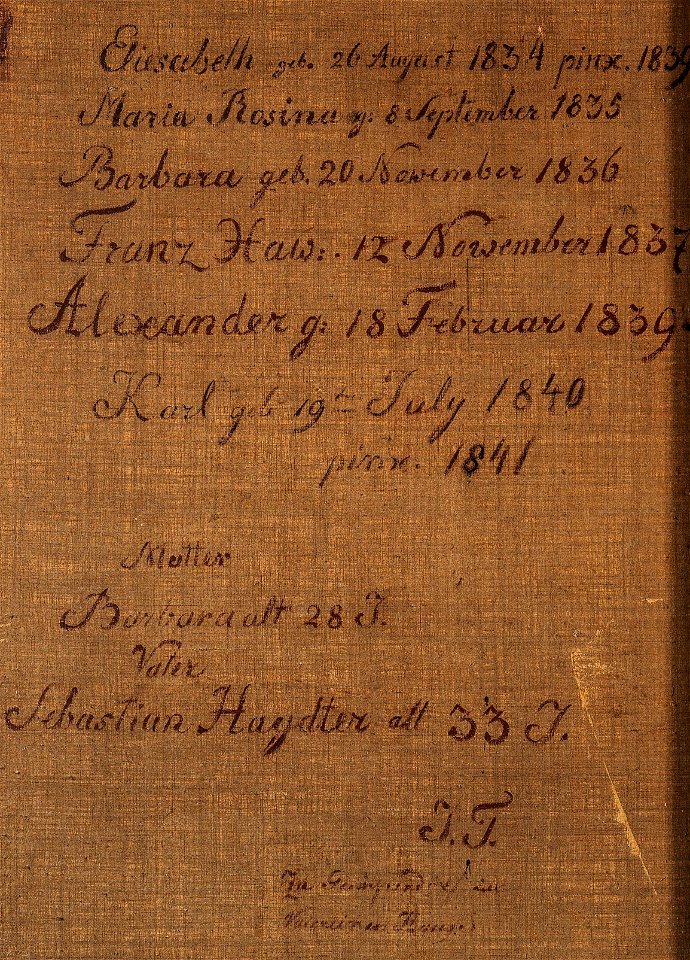 Eliesabeth geb. 26 August 1834 pinx. 1839
Maria Rosina g: 8 September 1835
Barbara geb. 20 November 1836
Franz Xaw: . 12 November 1837
Alexander g: 18 Februar 1839
Karl geb 19ten July 1840
pinx. 1841
Mutter
Barbara alt 28 J.
Vater
Sebastian Haydter alt 33 J.
J. T.
Zu